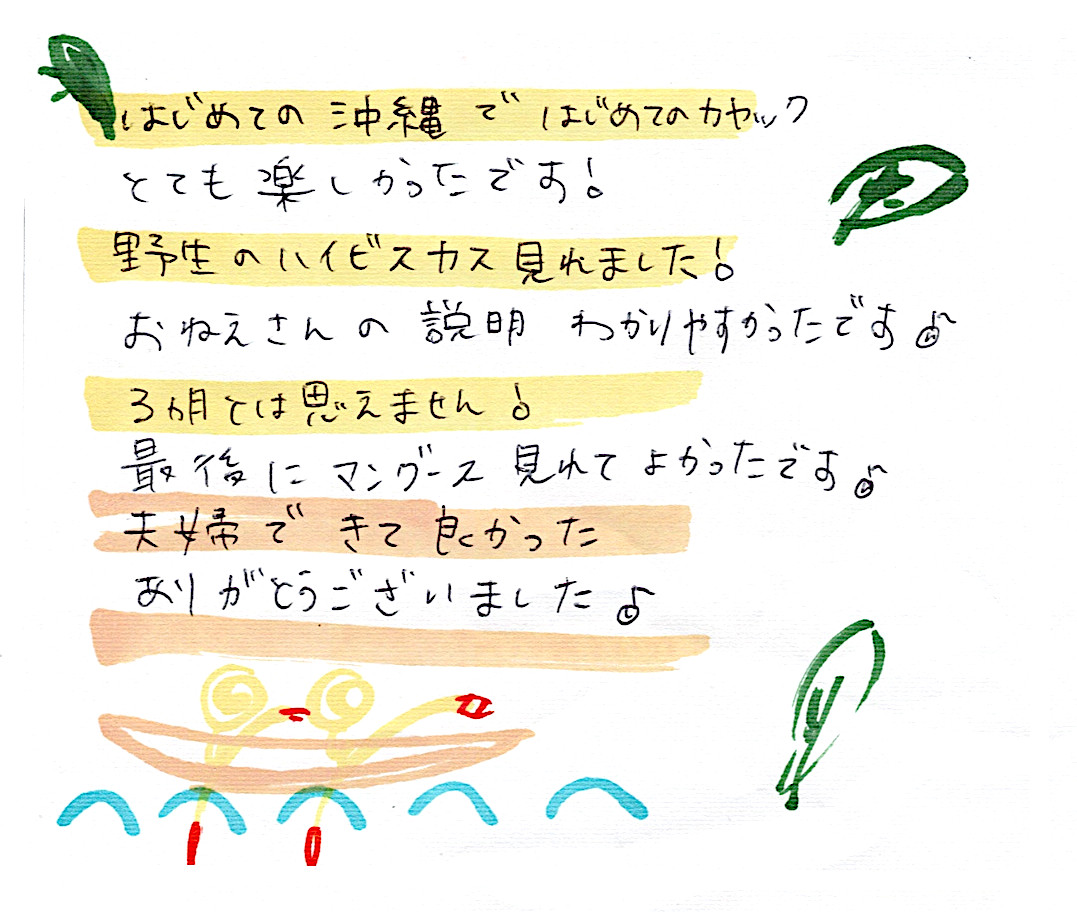 はじめての沖縄ではじめてのカヤック
とても楽しかったです!
野生のハイビスカス見れました!
おねえさんの説明 わかりやすかったです♪
3ヵ月とは思えません!
最後にマングース見れてよかったです♪
夫婦できて良かった
ありがとうございました♪